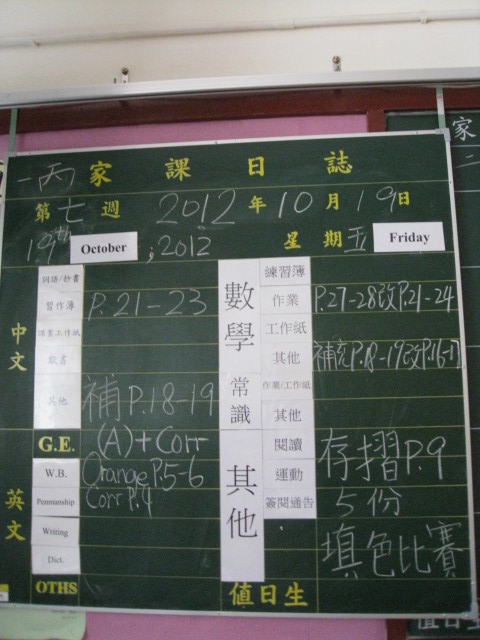 一丙 家課日誌
第七週 2012年10月19日
19th October ; 2012 星期五 Friday
中文
詞語/抄書
習作簿 P.21-23
默書
其他 補P.18-19
英文
G.E. (A)+Corr
W.B. Orange P.5-6
Penmanship Corr P.4
Writing
Dict.
OTHS
數學
練習簿
作業 P.27-28改P.21-24
工作紙
其他 補充P.18-19改P.16-17
常識
作業/工作紙
其他
其他
閱讀 存摺P.9
運動
簽閱通告 5份
填色比賽
值日生
家
二
值日生